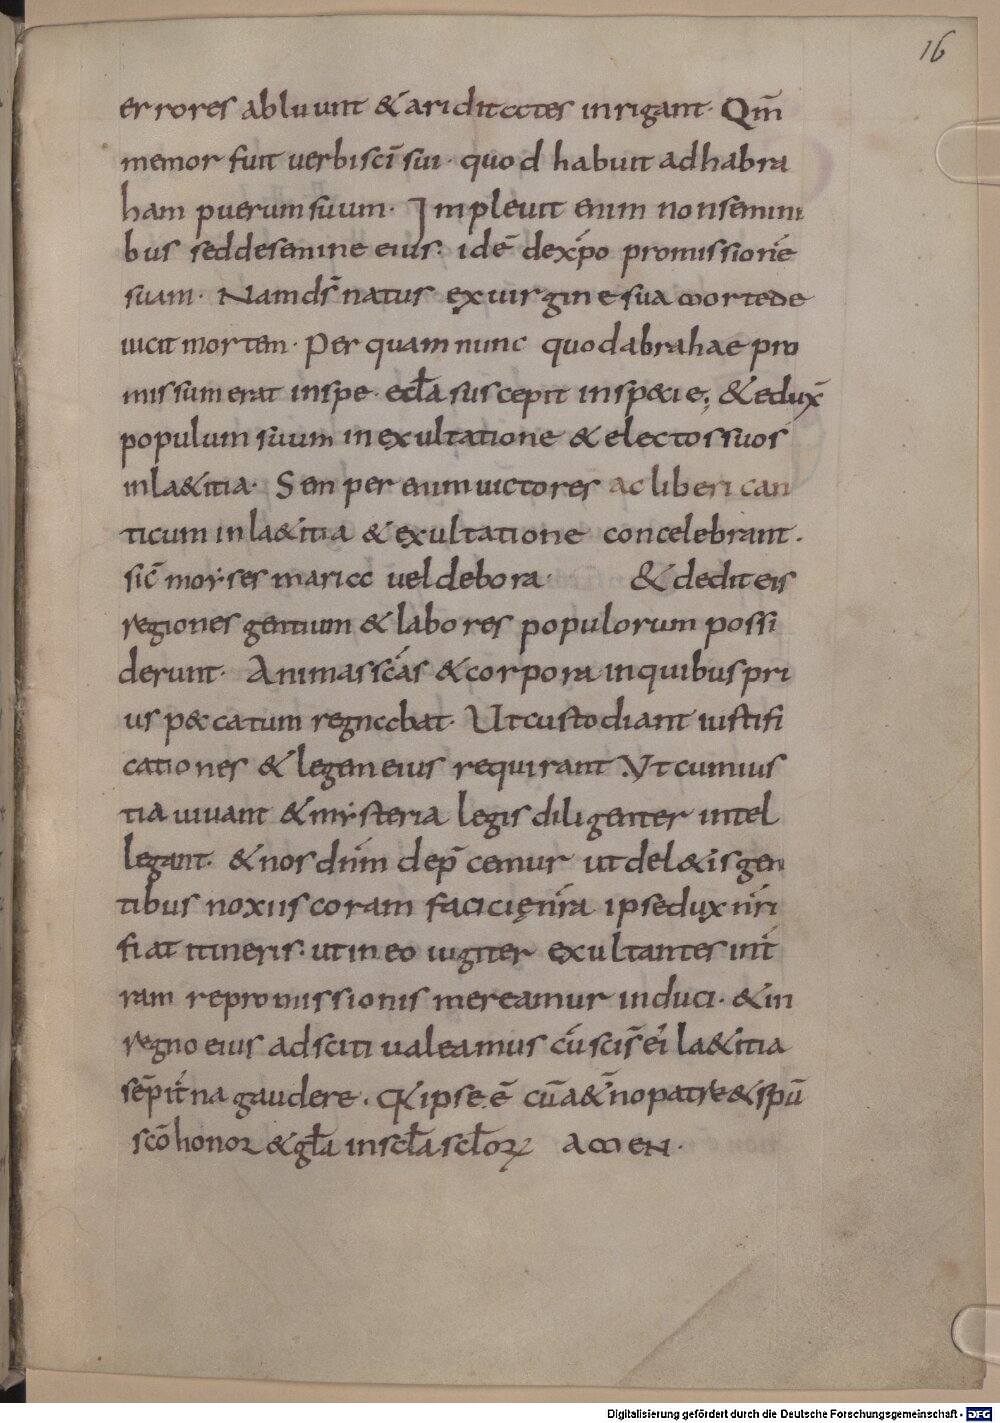 16
errores abluunt & ariditates inrigant. Qm̄
memor fuit uerbi sc̄i sui. quod habuit ad habra
ham puerum suum. Impleuit enim non semini
bus sed de semine eius. idē dexp̄o promissionē
suam. Nam dn̄s natus ex uirgine sua morte de
uicit mortem. Per quam nunc quod abrahae pro
missum erat in spe. eccl̄a suscepit in sp&ie; & edux̄
populum suum in exultatione & electos suos
in la&itia. Semper enim uictores ac liberi can
ticum in la&itia & exultatione concelebrant.
sic̄ moyses maria uel debora. & dedit eis
regiones gentium & labores populorum possi
derunt. Animas sc̄as & corpora in quibus pri
us p&catum regnabat. Ut custodiant iustifi
cationes & legem eius requirant. Vt cum ius
tia uiuant & mysteria legis diligenter intel
legant. & nos dn̄m dep̄cemur ut del&is gen
tibus noxiis coram facie nr̄a ipse dux nr̄i
fiat itineris. ut in eo iugiter exultantes in t̄
ram repromissionis mereamur induci. & in
regno eius adsciti ualeamus cū sc̄is ei la&itia
sēpit̄na gaudere. Qui ipse ē cū a&̄no patre & spū
sc̄o honor & gl̄a in scl̄a scl̄orum AMEN.
Digitalisierung gefördert durch die Deutsche Forschungsgemeinschaft - DFG